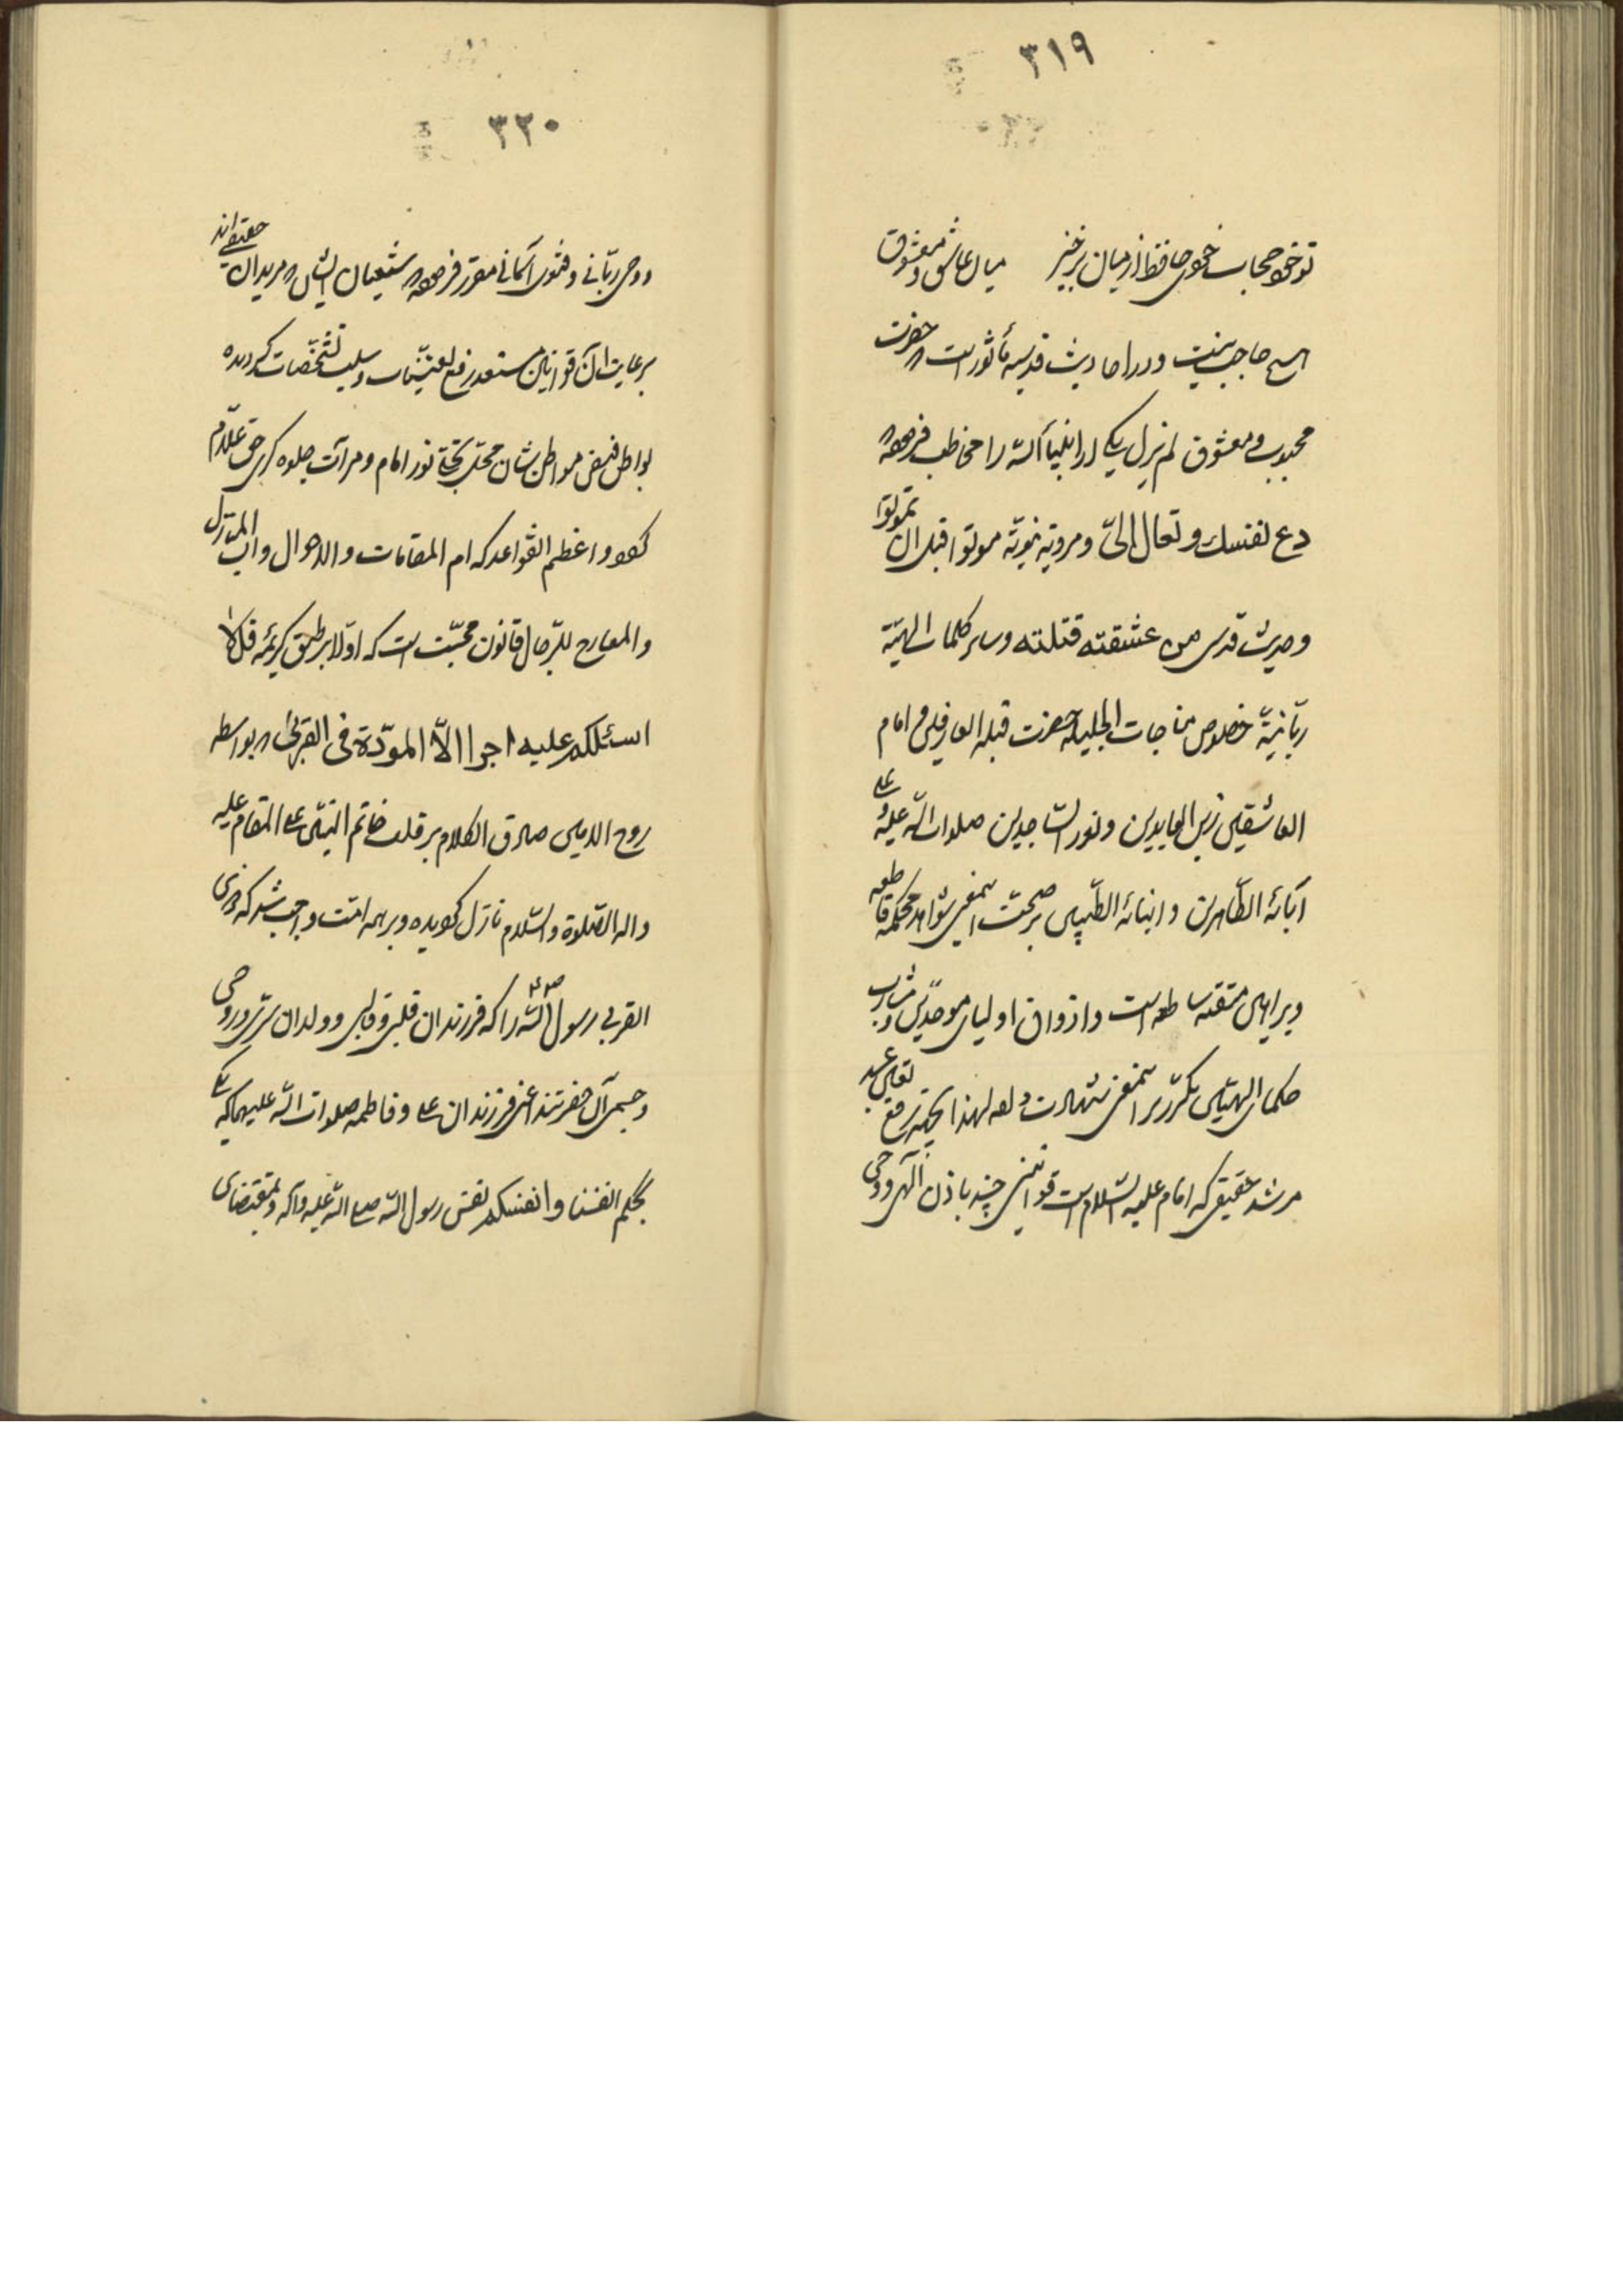 ٣١٩
تو خود حجاب خودی حافظ از میان برخیز میان عاشق و معشوق
هیچ حاجب نیست و در احادیث قدسیه مأثور است که حضرت
محبوب و معشوق لم یزل یکی از انبیاء الله را مخاطب فرموده
دع نفسك و تعال الیّ و مرویّه نبویّه موتوا قبل ان تموتوا
و حدیث قدسی من عشقته قتلته و سایر کلمات الهیّه
ربّانیّه خصوص مناجات الجلیله حضرت قبله العارفین و امام
العاشقین زین العابدین و نور الساجدین صلوات الله علیه و علی
آبائه الطّاهرین و ابنائه الطّیبین بر صحّت اینمعنی شواهد محکمه قاطعه
و براهین متقنه ساطعه است و اذواق اولیای موحّدین و مشارب
حکمای الهیّین مکرّر بر اینمعنی شهادت داده لهذا بجهة رفع تعیّن عبد
مرشد حقیقی که امام علیه السّلام است قوانینی چند باذن الهی و وحی
٣٢٠
و وحی ربّانی و فتوی آسمانی مقرّر فرموده شیعیان ایشان که مریدان حقیقی‌اند
برعایت آن قوانین مستعد رفع تعیّنات و سلب تشخّصات گردیده
بواطن فیض مواطن‌شان محل تجلی نور امام و مرآت جلوه گری حق علّام
شود و اعظم القواعد که ام المقامات و الاحوال و اب المنازل
و المعارج للرّجال قانون محبّت است که اوّلا بر طبق کریمه قل لا
اسئلکم علیه اجرا الاّ المودّة فی القربی که بواسطه
روح الامین صادق الکلام بر قلب خاتم النبیّین علی المقام علیه
و اله الصّلوة و السّلام نازل گردیده و بر همه امّت واجب شد که ذوی
القربی رسول الله را که فرزندان قلبی و قالبی و ولدان سرّی و روحی
و جسمی آن حضرتند اعنی فرزندان علی و فاطمه صلوات الله علیهما که یکی
بحکم انفسنا و انفسکم نفس رسول الله صلی الله علیه و آله و بمقتضای